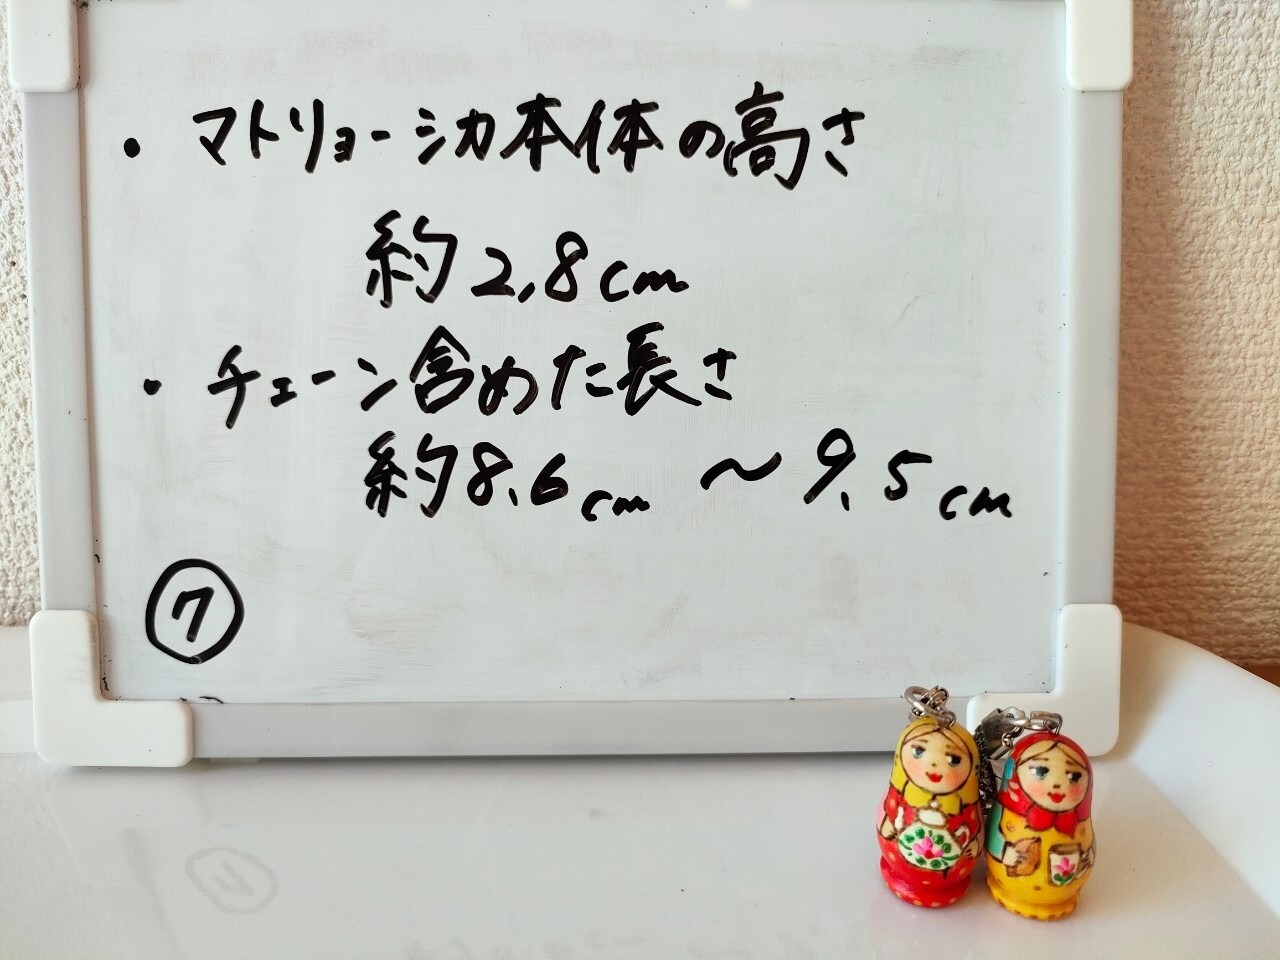 ・マトリョーシカ本体の高さ
約2.8cm
・チェーン含めた長さ
約8.6cm 〜9.5cm
⑦